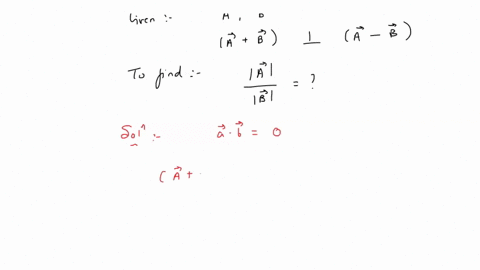 Given :- A , B
(A⃗ + B⃗) ⊥ (A⃗ − B⃗)
To find :- |A⃗| / |B⃗| = ?
Solⁿ :- a⃗ · b⃗ = 0
( A⃗ + .